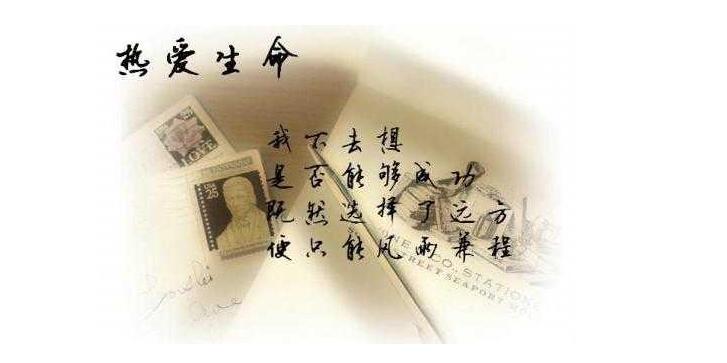 热爱生命
我不去想
是否能够成功
既然选择了远方
便只能风雨兼程
LOVE
USA
25
CO. STATION
STREET SEAPORT